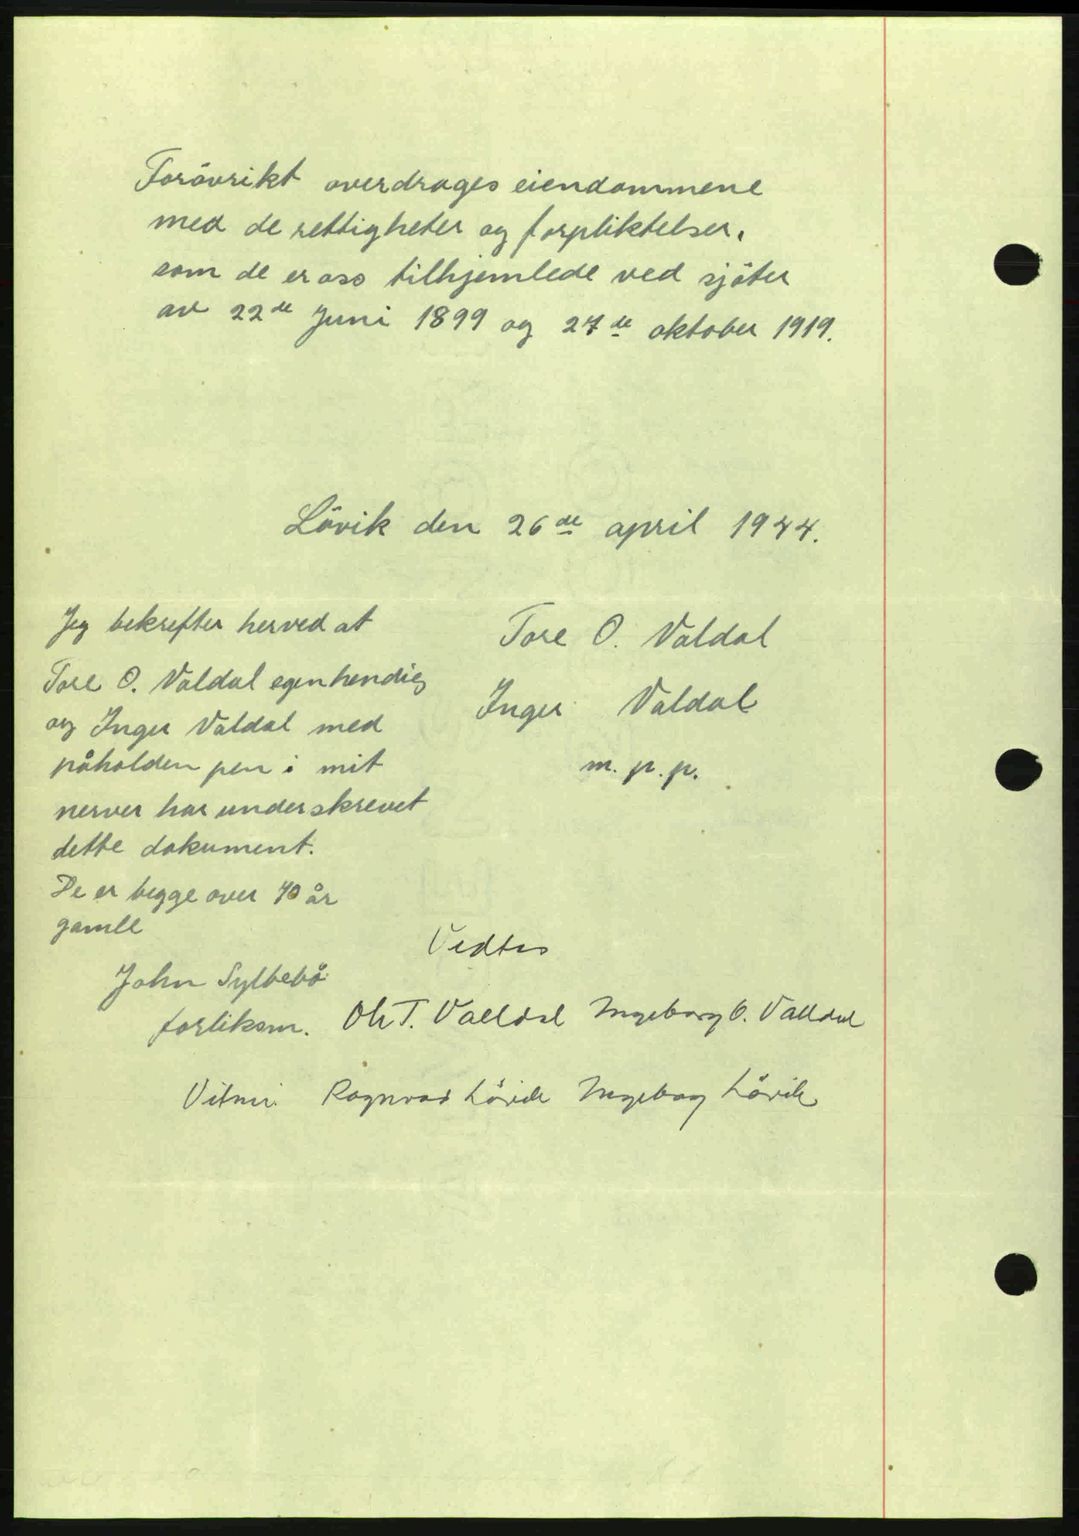 Forövrikt overdrages eiendommene
med de rettigheter og forpliktelser,
som de er oss tilhjemlede ved sjöter
av 22de Juni 1899 og 27de oktober 1919.
Lövik den 26de april 1944.
Jeg bekrefter herved at
Tore O. Valdal egenhendig
og Inger Valdal med
påholden pen i mit
nerver har underskrevet
dette dokument.
De er begge over 70 år
gamle
John Syltebö
forliksm.
Tore O. Valdal
Inger Valdal
m. p. p.
Vedtas
Ole T. Valldal Ingeborg O. Valldal
Vitni Ragnvad Lövik Ingeborg Lövik